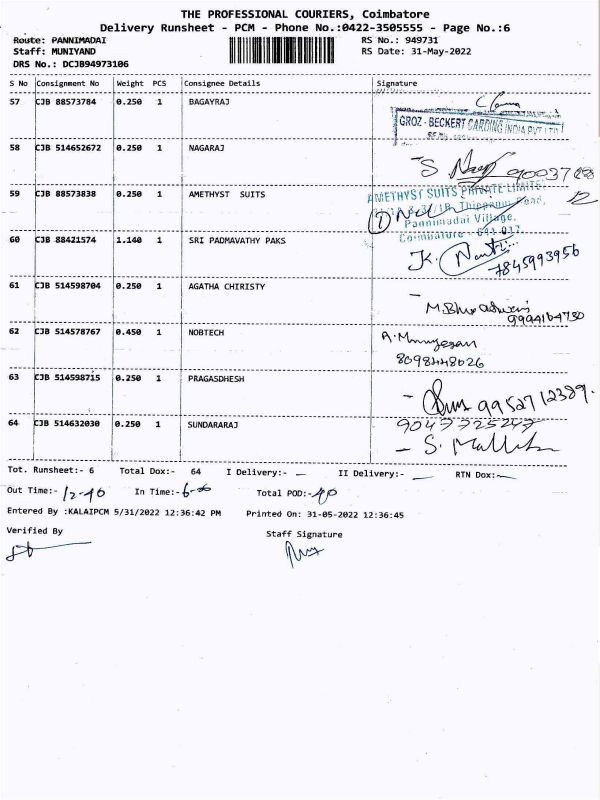 THE PROFESSIONAL COURIERS, Coimbatore
Delivery Runsheet - PCM - Phone No.:0422-3505555 - Page No.:6
Route: PANNIMADAI RS No.: 949731
Staff: MUNIYAND RS Date: 31-May-2022
DRS No.: DCJB94973106
S No Consignment No Weight PCS Consignee Details Signature
57 CJB 88573784 0.250 1 BAGAYRAJ
GROZ-BECKERT CARDING INDIA PVT LTD
58 CJB 514652672 0.250 1 NAGARAJ
S
59 CJB 88573838 0.250 1 AMETHYST SUITS
AMETHYST SUITS PRIVATE LIMITED
Thippanur Road,
Pannimadai Village,
Coimbatore - 641 017
60 CJB 88421574 1.140 1 SRI PADMAVATHY PAKS
K.
7845993956
61 CJB 514598704 0.250 1 AGATHA CHIRISTY
9994164730
62 CJB 514578767 0.450 1 NOBTECH A. Murugesan
8098448026
63 CJB 514598715 0.250 1 PRAGASDHESH
9952712389.
64 CJB 514632030 0.250 1 SUNDARARAJ 9047725247
- S.
Tot. Runsheet:- 6 Total Dox:- 64 I Delivery:- — II Delivery:- — RTN Dox:—
Out Time:- 12-40 In Time:- 6-00 Total POD:- 40
Entered By :KALAIPCM 5/31/2022 12:36:42 PM Printed On: 31-05-2022 12:36:45
Verified By Staff Signature